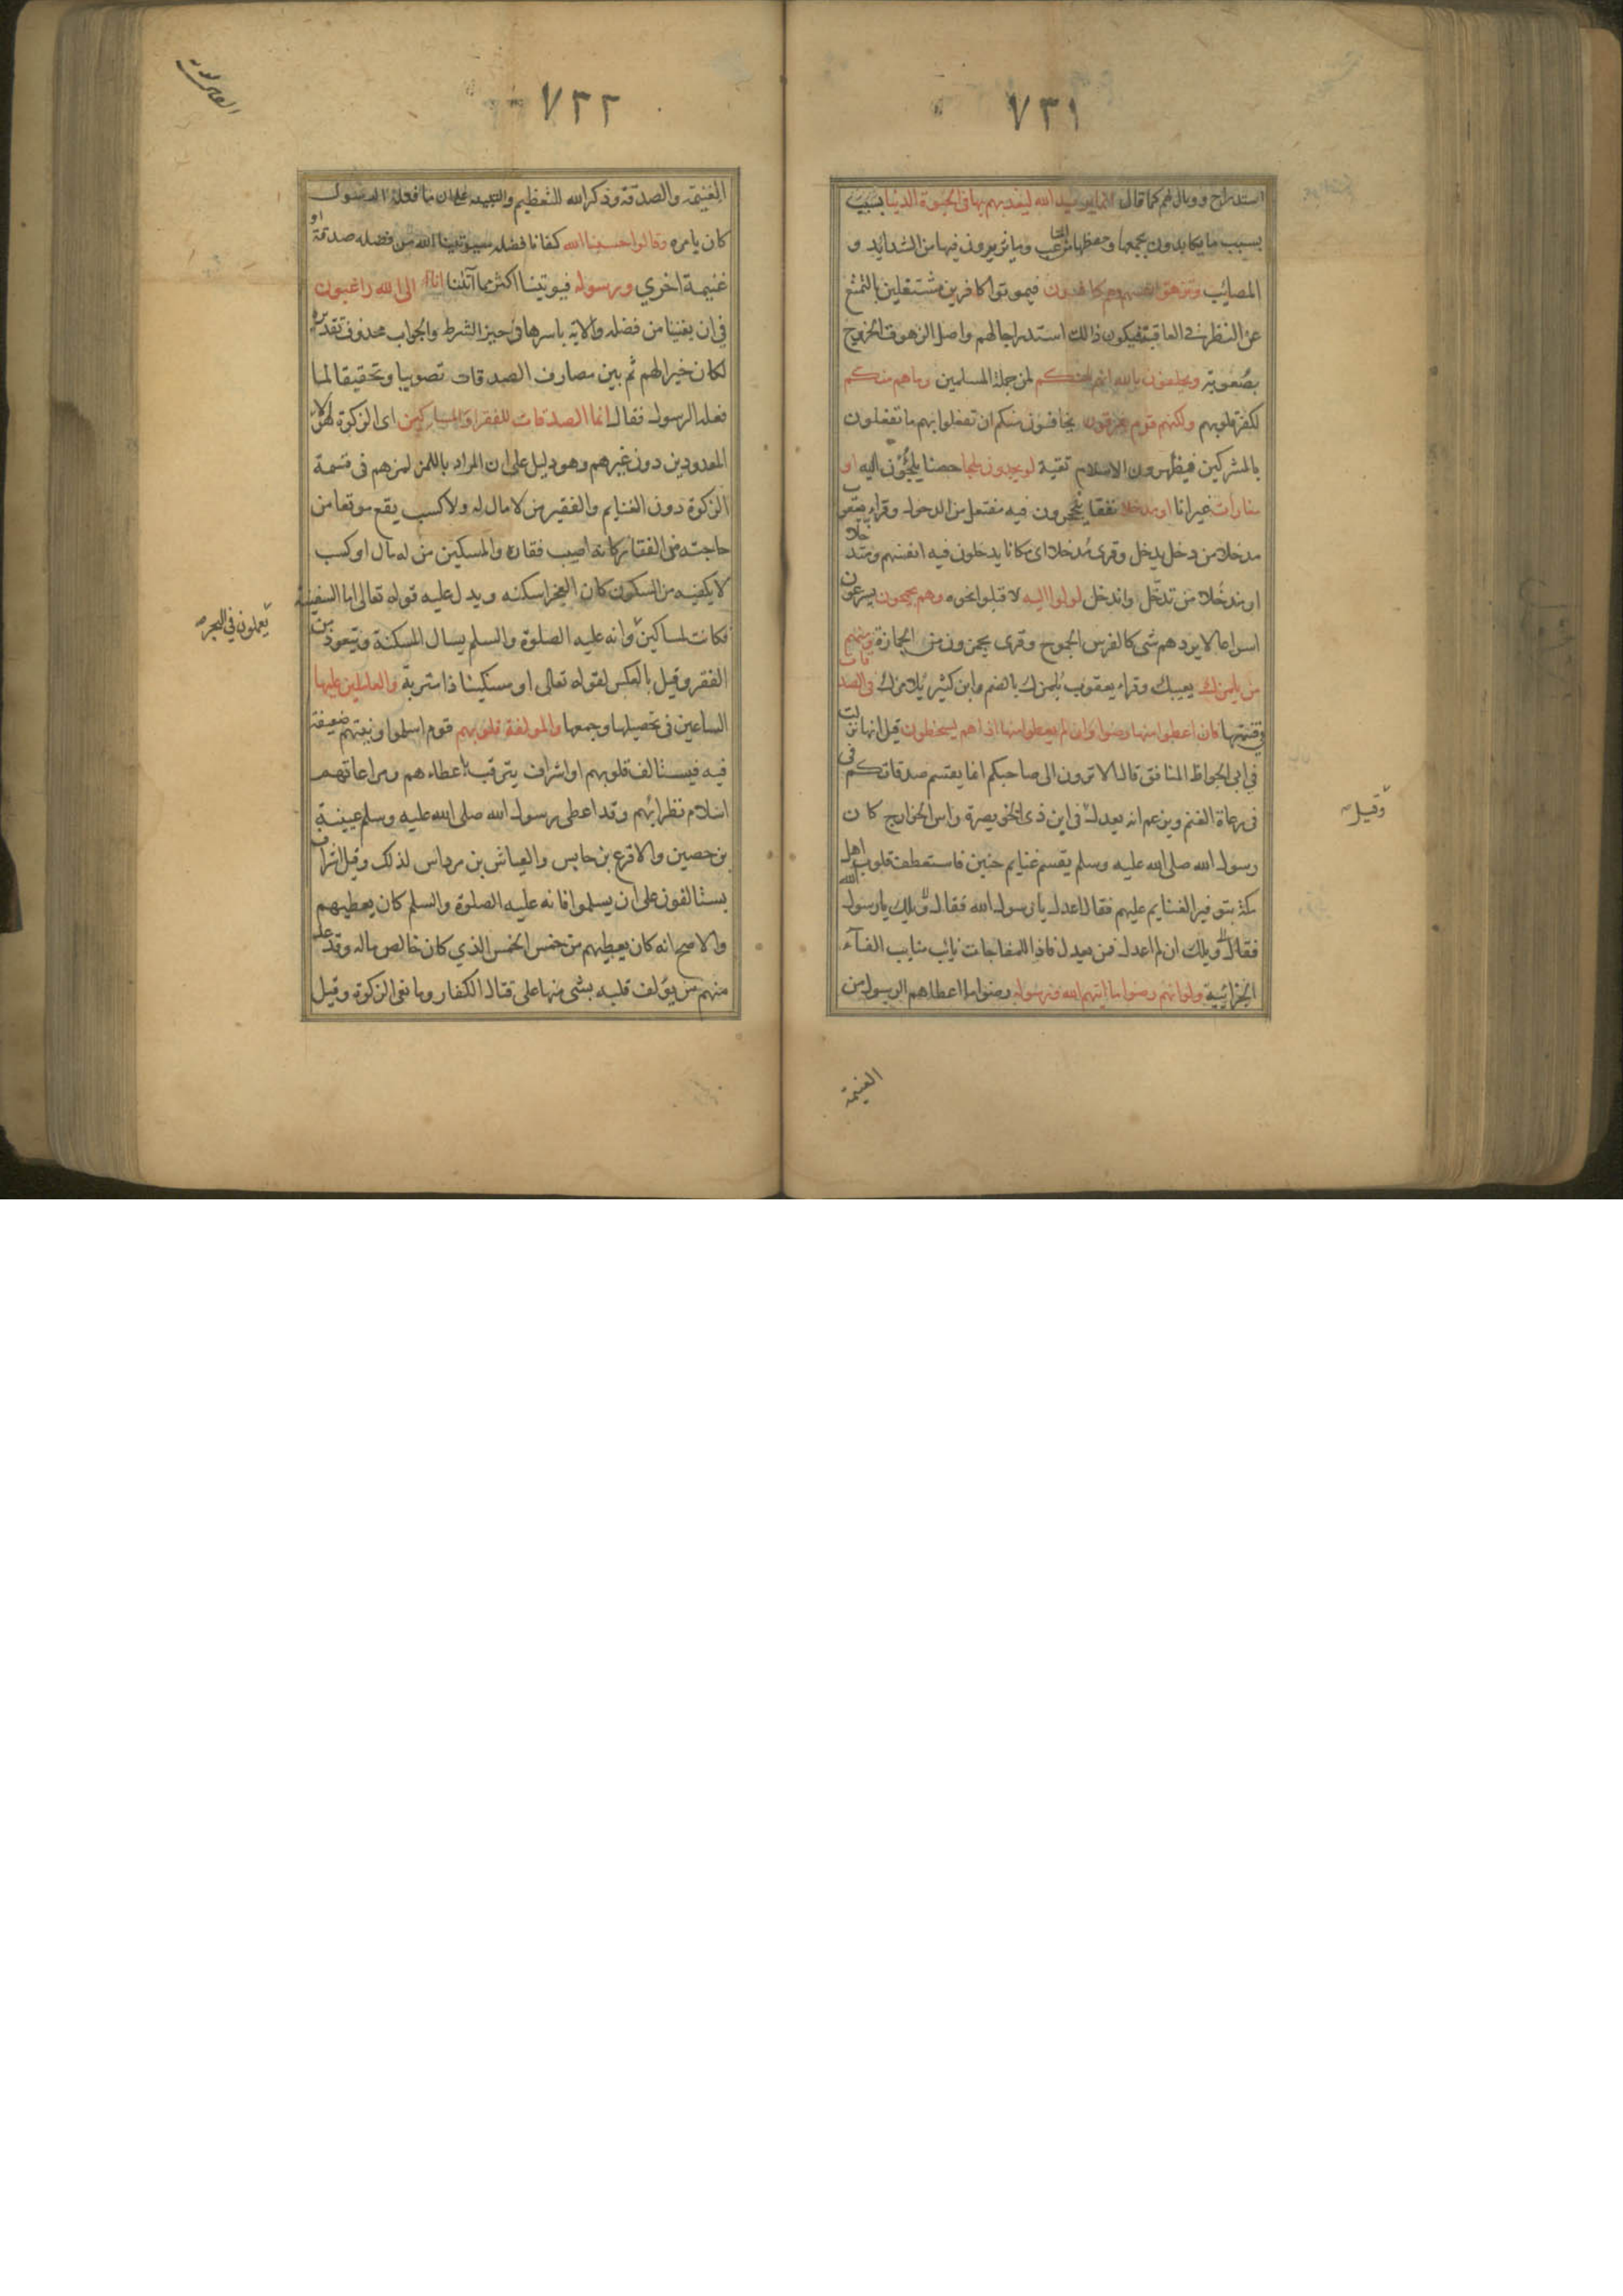 ٧٣١
استدراج ووبال لهم كما قال انما يريد الله ليعذبهم بها في الحيوة الدنيا بسبب
بسبب ما يكابدون بجمعها وحفظها من المتاعب وما يرون فيها من الشدايد و
المصائب وتزهق انفسهم وهم كافرون فيموتوا كافرين مشتغلين بالتمتع
عن النظر في العاقبة فيكون ذالك استدراجا لهم واصل الزهوق الخروج
بصعوبة ويحلفون بالله انهم لمنكم لمن جملة المسلمين وما هم منكم
لكفر قلوبهم ولكنهم قوم يفرقون يخافون منكم ان تفعلوا بهم ما تفعلون
بالمشركين فيظهرون الاسلام تقية لو يجدون ملجا حصنا يلجؤن اليه او
مغارات غيرانا او مدخلا نفقا ينجحرون فيه مفتعل من الدخول وقراء يعقوب
مدخلا من دخل يدخل وقرى مُدخلا اى مكانا يدخلون فيه انفسهم ومتدخلا
او مندخلا من تدخّل واندخل لولوا اليه لاقبلوا نحوه وهم يجمحون يسرعون
اسراعا لا يردهم شى كالفرس الجموح وقرى يجمزون من الجمازة ومنهم
من يلمزك يعيبك وقراء يعقوب يلمزك بالضم وابن كثير يلامزك في الصدقات
في قسمتها فان اعطوا منها رضوا وان لم يعطوا منها اذا هم يسخطون قيل انها نزلت
في ابى الجواظ المنافق قال الا ترون الى صاحبكم انما يقسم صدقاتكم فى
فى رعاة الغنم ويزعم انه يعدل فى ابن ذى الخويصرة راس الخوارج كان
وقيل
رسول الله صلى الله عليه وسلم يقسم غنايم حنين فاستعطف قلوب اهل
مكة بتوفير الغنايم عليهم فقال اعدل يا رسول الله فقال ويلك يا رسول الله
فقال ويلك ان لم اعدل فمن يعدل فاذا للمفاجات نايب مناب الفآء
الجزائية ولو انهم رضوا ما اتيهم الله ورسوله رضوا ما اعطاهم الرسول من
الغنيمة
٧٣٢
الغنيمة والصدقة وذكر الله للتعظيم والتنبيه على ان ما فعله الرسول
كان بامره وقالوا حسبنا الله كفانا فضله سيوتينا الله من فضله صدقة او
غنيمة اخري ورسوله فيوتينا اكثر مما آتانا انا الى الله راغبون
في ان يغنينا من فضله والاية باسرها فى حيز الشرط والجواب محذوف تقديره
لكان خيرا لهم ثم بين مصارف الصدقات تصويبا وتحقيقا لما
فعله الرسول فقال انما الصدقات للفقرا والمساكين اى الزكوة لهولاء
المعدودين دون غيرهم وهو دليل على ان المراد باللمز لمزهم فى قسمة
الزكوة دون الغنايم والفقير من لا مال له ولا كسب يقع موقعا من
حاجته من الفقار كانه اصيب فقاره والمسكين من له مال او كسب
لا يكفيه من السكون كان العجز اسكنه ويدل عليه قوله تعالى اما السفينة
فكانت لمساكين وانه عليه الصلوة والسلم يسال المسكنة ويتعوذ من
يعملون في البحر
الفقر وقيل بالعكس لقوله تعالى او مسكينا ذا متربة والعاملين عليها
الساعين فى تحصيلها وجمعها والمولفة قلوبهم قوم اسلموا ونيتهم ضعيفة
فيه فيستالف قلوبهم او اشراف يترقب باعطاءهم ومراعاتهم
اسلام نظرائهم وقد اعطى رسول الله صلى الله عليه وسلم عيينة
بن حصين والاقرع بن حابس والعباس بن مرداس لذلك وقيل اشراف
يستالفون على ان يسلموا فانه عليه الصلوة والسلم كان يعطيهم
والاصح انه كان يعطيهم من خمس الخمس الذي كان خالص ماله وقد عد
منهم من يولف قلبه بشى منها على قتال الكفار ومانعى الزكوة وقيل